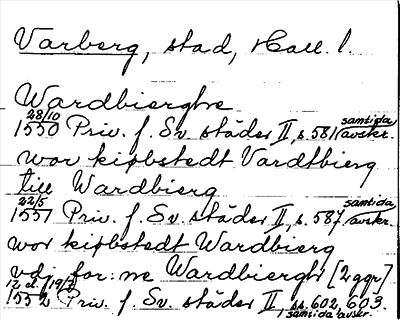 Varberg, stad, Hall. l.
Wardbierghe
28/10 1550 Priv. f. Sv. städer II, s. 581 samtida avskr.
wor kiøbstedt Vardtbierg
till Wardbierg
22/5 1551 Priv. f. Sv. städer II, s. 587 samtida avskr.
wor kiøbstedt Wardbierg
vdj for:ne Wardbiergh [2 ggr]
1552 Priv. f. Sv. städer II, ss. 602, 603. samtida avskr.